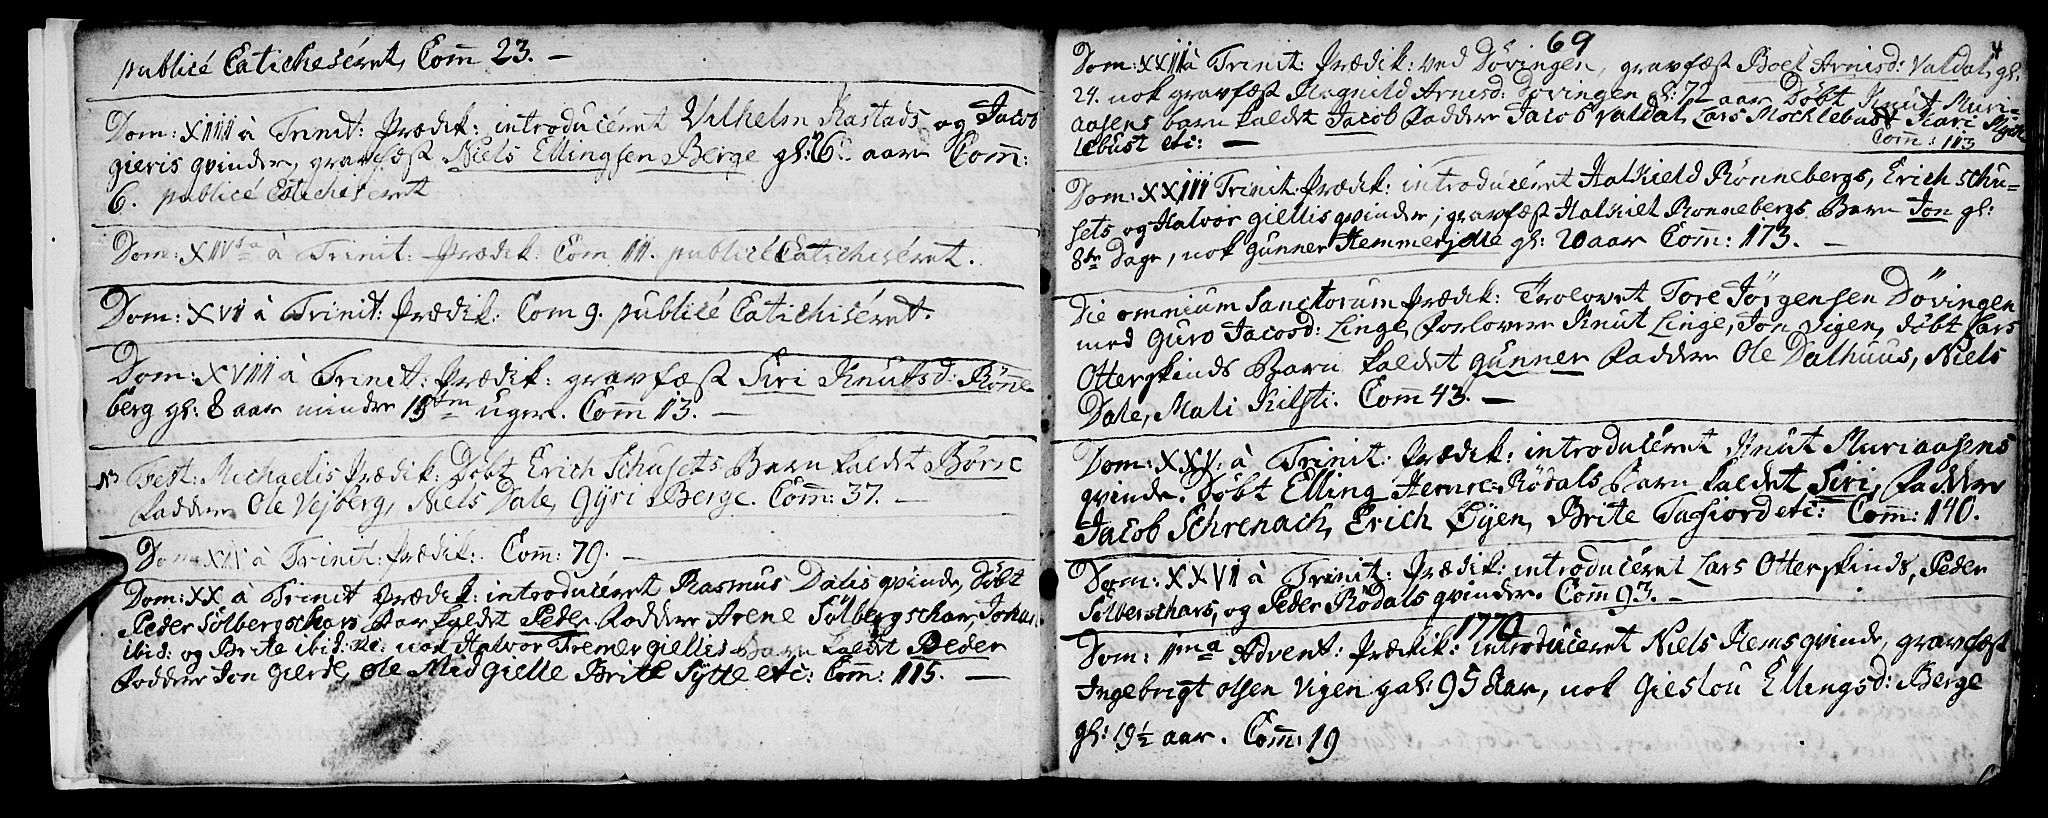 publicé Catichiséret, Com̄ 23. —
Dom: XIIII à Trinit: Prædik: introducéret Vilhelm Rastads og Jacob
gieris qvinder, gravfæst Niels Ellingsen Berge gl: 6 aar Com̄:
6. publicé Catichiseret
Dom: XIV à Trinit: Prædik: Com III. publicé Catichiséret.
Dom: XVI à Trinit: Prædik: Com 9. publicé Catichiséret.
Dom: XVIII à Trinit: Prædik: gravfæst Siri Knutsd: Rönne-
berg gl: 8 aar mindre 15 uger. Com̄ 13. —
Fest. Michaelis Prædik: Döbt Erich Schusets Barn kaldet Börre
Faddere Ole Vejberg, Niels Dale, Gÿri Berge. Com̄: 37. —
Dom XIX à Trinit: Prædik: Com̄: 79. —
Dom: XX à Trinit Prædik: introducéret Rasmus Dalis qvinde, Döbt
Peder Sölbergschars Bar kaldet Peder Faddere Arene Sölbergschar, Johan
ibid: og Brite ibid: etc: nok Halvor Fremergiellis Barn kaldet Peder
Faddere Jon Gierde, Ole Midgielle Brite Sÿtte etc: Com̄: 115. —
69
4
Dom: XXII à Trinit: Prædik: ved Dövingen, gravfæst Boel Arnisd: Valdal, gl:
24. nok gravfæst Magnild Arnesd: Dövingen gl: 72 aar Döbt Knut Muri-
aasens barn kaldet Jacob Faddere Jacob Valdal, Lars Mocklebust Kari
lebust etc: — Com̄: 113
Dom: XXIII Trinit: Prædik: introducéret Halkield Rönnebergs, Erich schu-
sets og Halvor giellis qvinder, gravfæst Halkiel Ronnebergs Barn Jon gl:
8te Dage, nok gunner Hemmerjelle gl: 20 aar Com̄: 173. —
Die omnium Sanctorum Prædik: Trolovet Tore Jörgensen Dövingen
med Guro Jacosd: Linge, Forlovere Knut Linge, Jon Vigen, döbt Lars
Otterskinds Barn kaldet gunner Faddere Ole Dalhuus, Niels
Dale, Mali Kilsti. Com̄ 43. —
Dom: XXV: à Trinit: Prædik: introducéret Knut Muriaasens
qvinde. Döbt Elling Herre-Rödals Barn kaldet Siri, Faddere
Jacob Schrenack, Erich Öyen, Brite Tafiord etc: Com̄: 140.
Dom: XXVI à Trinit: Prædik: introducéret Lars Otterskinds, Peder
Sölberschars, og Peder Rödals qvinder. Com̄ 93. —
1770
Dom: 1ma Advent: Prædik: introducéret Niels Hems qvinde, gravfæst
Ingebrigt Olsen Vigen gal: 95 Aar, nok Gieslou Ellingsd: Berge
gl: 19½ aar. Com̄: 19